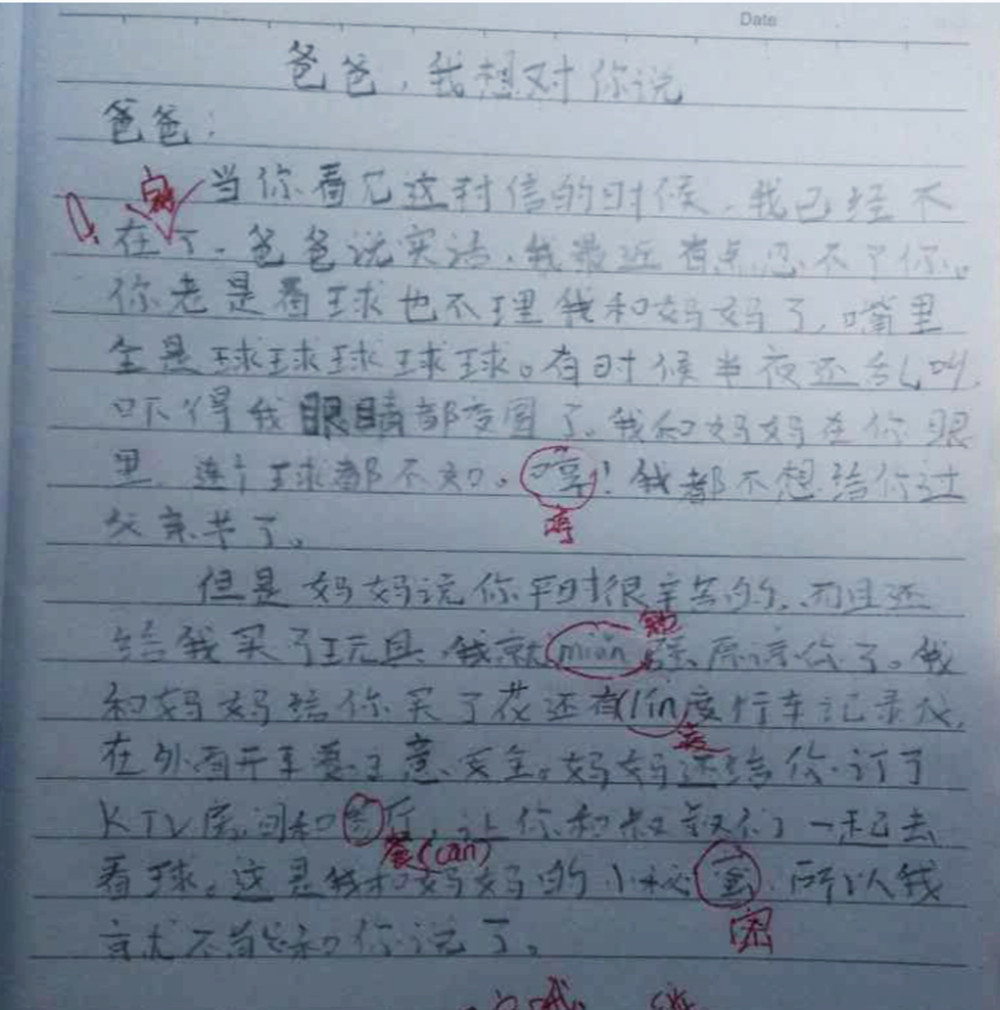 Date
爸爸，我想对你说
爸爸：
当你看见这封信的时候，我已经不
在了，爸爸说实话，我最近有点忍不了你。
你老是看球也不理我和妈妈了，嘴里
全是球球球球球。有时候半夜还乱叫，
吓得我眼睛都变圆了。我和妈妈在你眼
里，连个球都不如。哼！我都不想给你过
哼
父亲节了。
但是妈妈说你平时很辛苦的，而且还
给我买了玩具，我就miǎn强原谅你了。我
勉
和妈妈给你买了花还有lín度行车记录仪，
在外面开车要注意安全。妈妈还给你订了
KTV房间和厅，让你和叔叔们一起去
餐(cān)
看球。这是我和妈妈的小秘密，所以我
密
就不能和你说了。